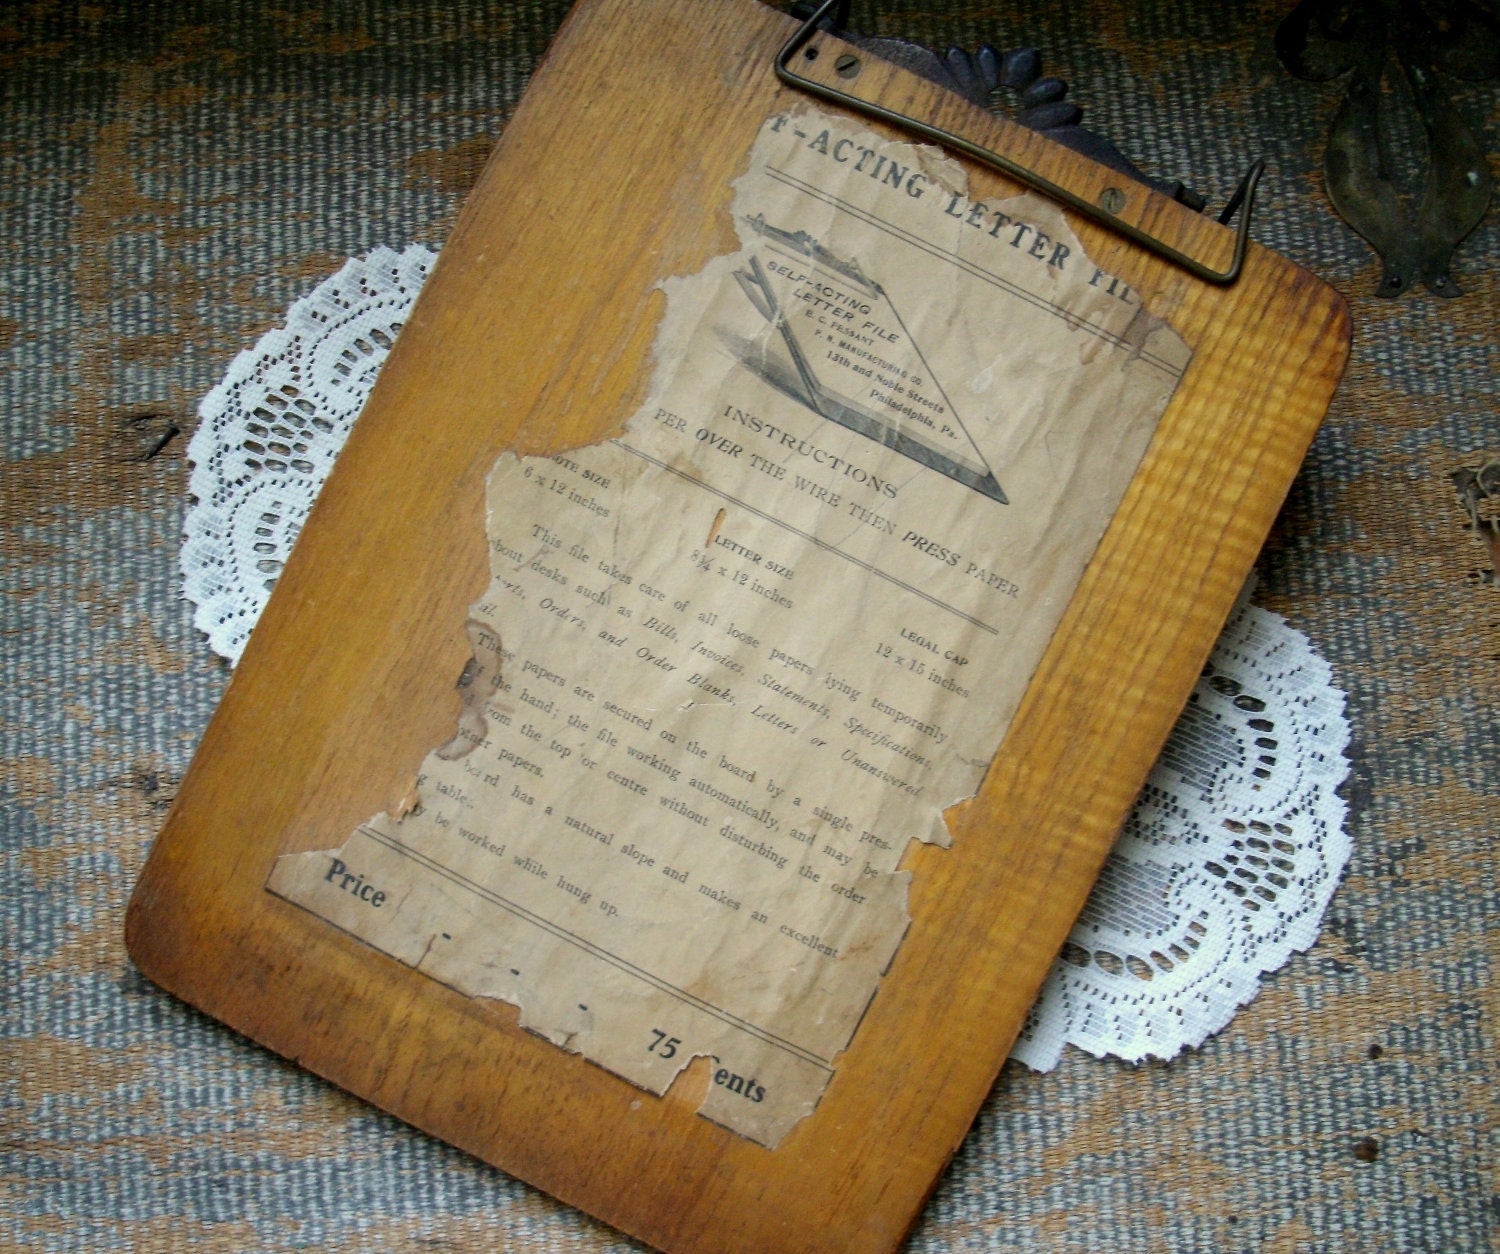 F-ACTING LETTER FIL
SELF-ACTING
LETTER FILE
E. C. PESSANT
P. N. MANUFACTURING CO.
13th and Noble Streets
Philadelphia, Pa.
INSTRUCTIONS
PER OVER THE WIRE THEN PRESS PAPER
OTE SIZE
6 x 12 inches
LETTER SIZE
8¼ x 12 inches
LEGAL CAP
12 x 15 inches
This file takes care of all loose papers lying temporarily
about desks such as Bills, Invoices, Statements, Specifications,
orts, Orders, and Order Blanks, Letters or Unanswered
ail.
These papers are secured on the board by a single pres-
of the hand; the file working automatically, and may be
rom the top or centre without disturbing the order
other papers.
board has a natural slope and makes an excellent
g table.
y be worked while hung up.
Price - - - 75 ents